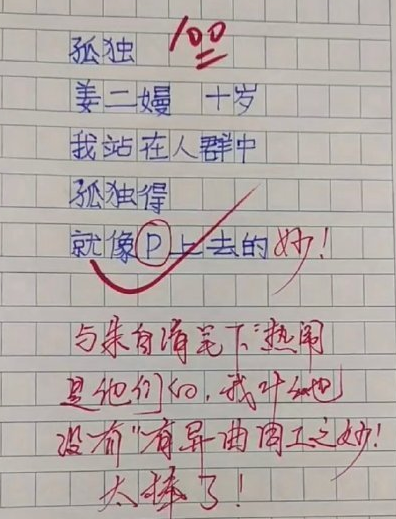 孤独 100
姜二嫚 十岁
我站在人群中
孤独得
就像P上去的 妙!
与朱自清笔下"热闹
是他们的,我什么也
没有"有异曲同工之妙!
太棒了!